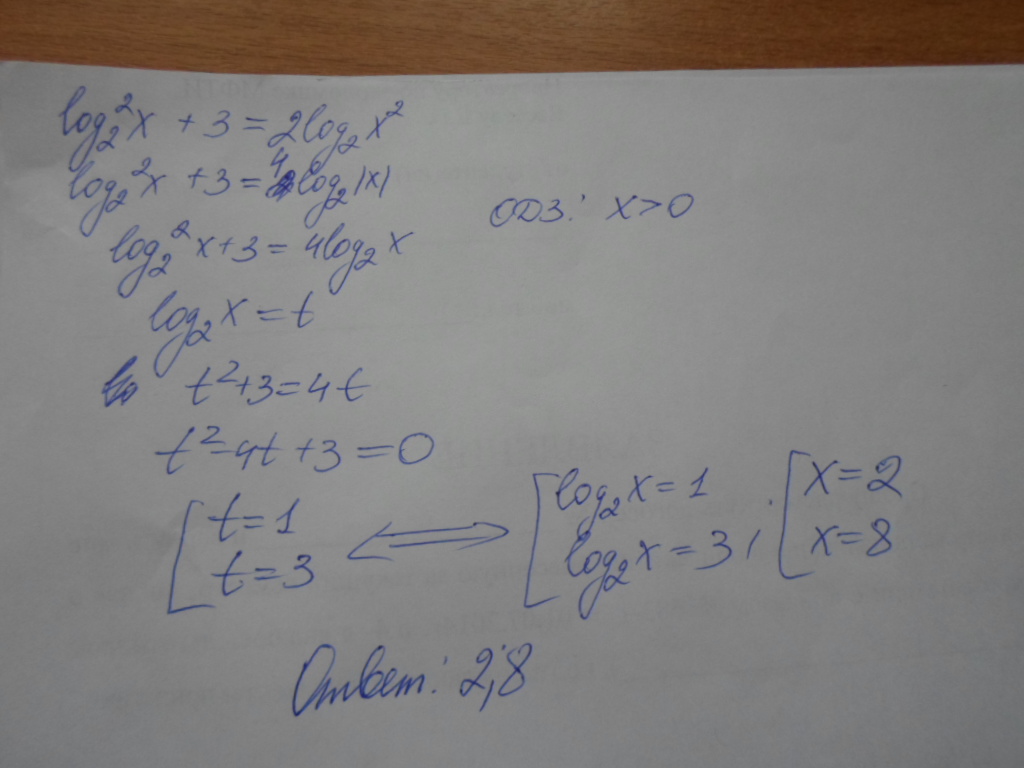 log₂²x + 3 = 2log₂x²
log₂²x + 3 = 4log₂|x|
ОДЗ: x>0
log₂²x+3 = 4log₂x
log₂x = t
t²+3=4t
t²-4t+3=0
[t=1 ⟺ [log₂x=1 ; [x=2
t=3 log₂x=3 x=8
Ответ: 2;8